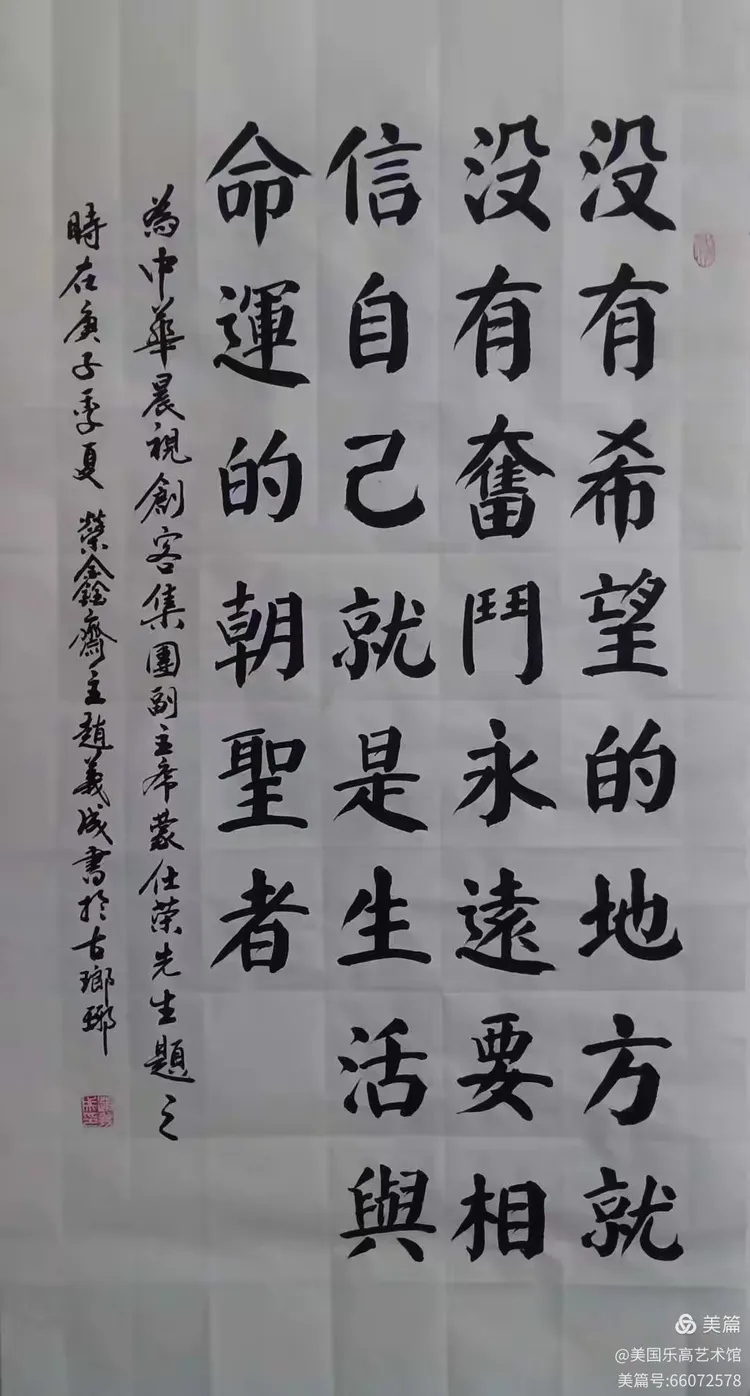 没有希望的地方就
没有奮鬥永遠要相
信自己就是生活與
命運的朝聖者
為中華晨視創客集團副主席蒙仕荣先生題之
時在庚子季夏 榮鑫齋主趙義成書於古瑯琊
美篇
@美国乐高艺术馆
美篇号:66072578